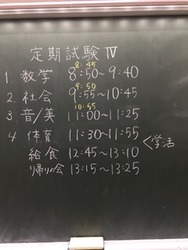 定期試験Ⅳ
8:45
1. 数学 8:50~9:40
9:50
2. 社会 9:55~10:45
10:55
3 音/美 11:00~11:25
4 体育 11:30~11:55
<学活
給食 12:45~13:10
帰りの会 13:15~13:25